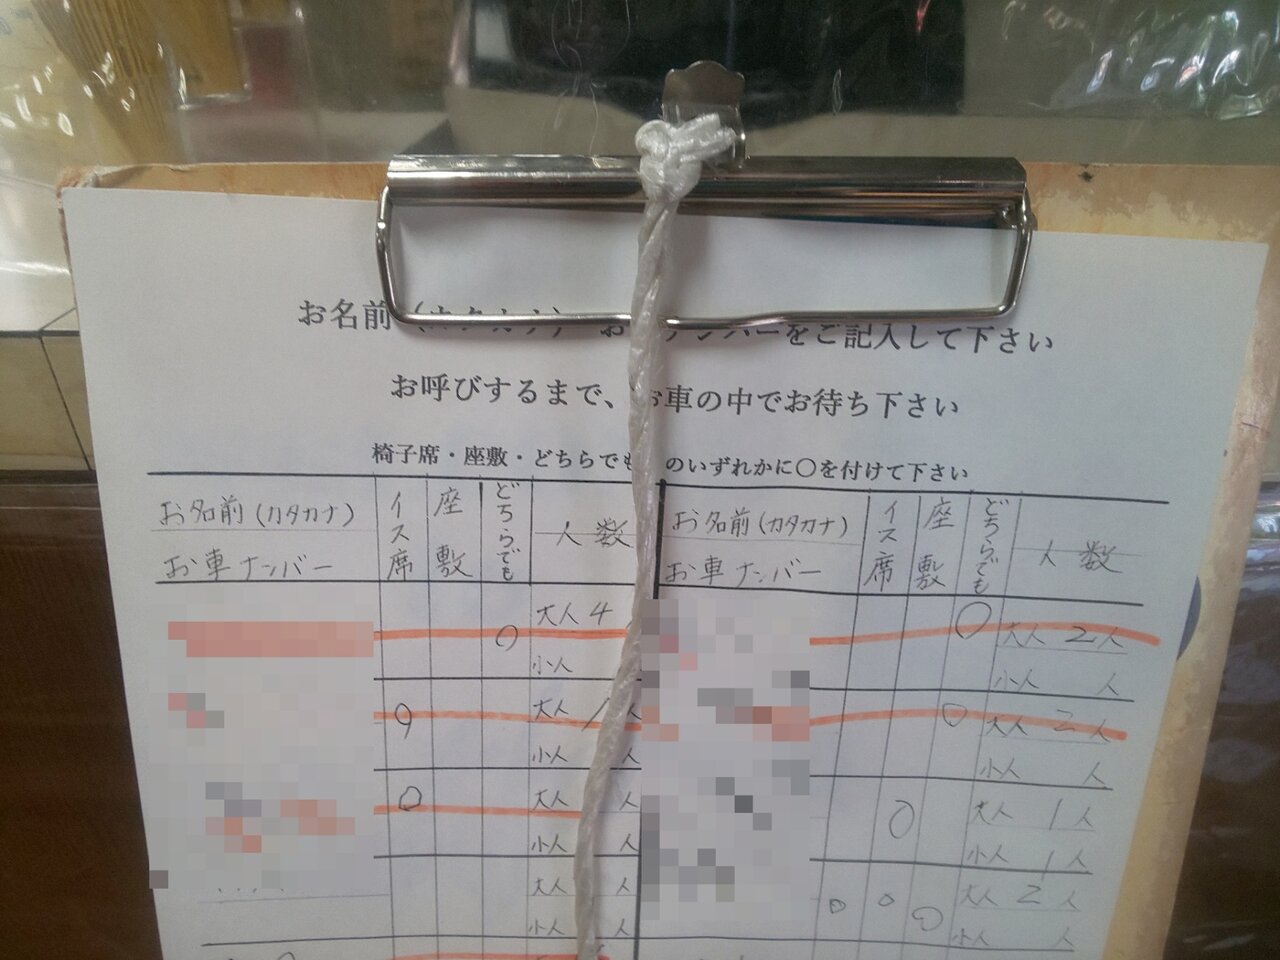 お名前（カタカナ） お ナンバーをご記入して下さい
お呼びするまで、お車の中でお待ち下さい
椅子席・座敷・どちらでも のいずれかに〇を付けて下さい
お名前(カタカナ)
お車ナンバー
イス席
座敷
どちらでも
人数
お名前(カタカナ)
お車ナンバー
イス席
座敷
どちらでも
人数
大人 4
小人
大人 1 人
小人 人
大人 人
小人 人
大人 人
小人 人
大人 2 人
小人 人
大人 2 人
小人 人
大人 1 人
小人 1 人
大人 2 人
小人 人